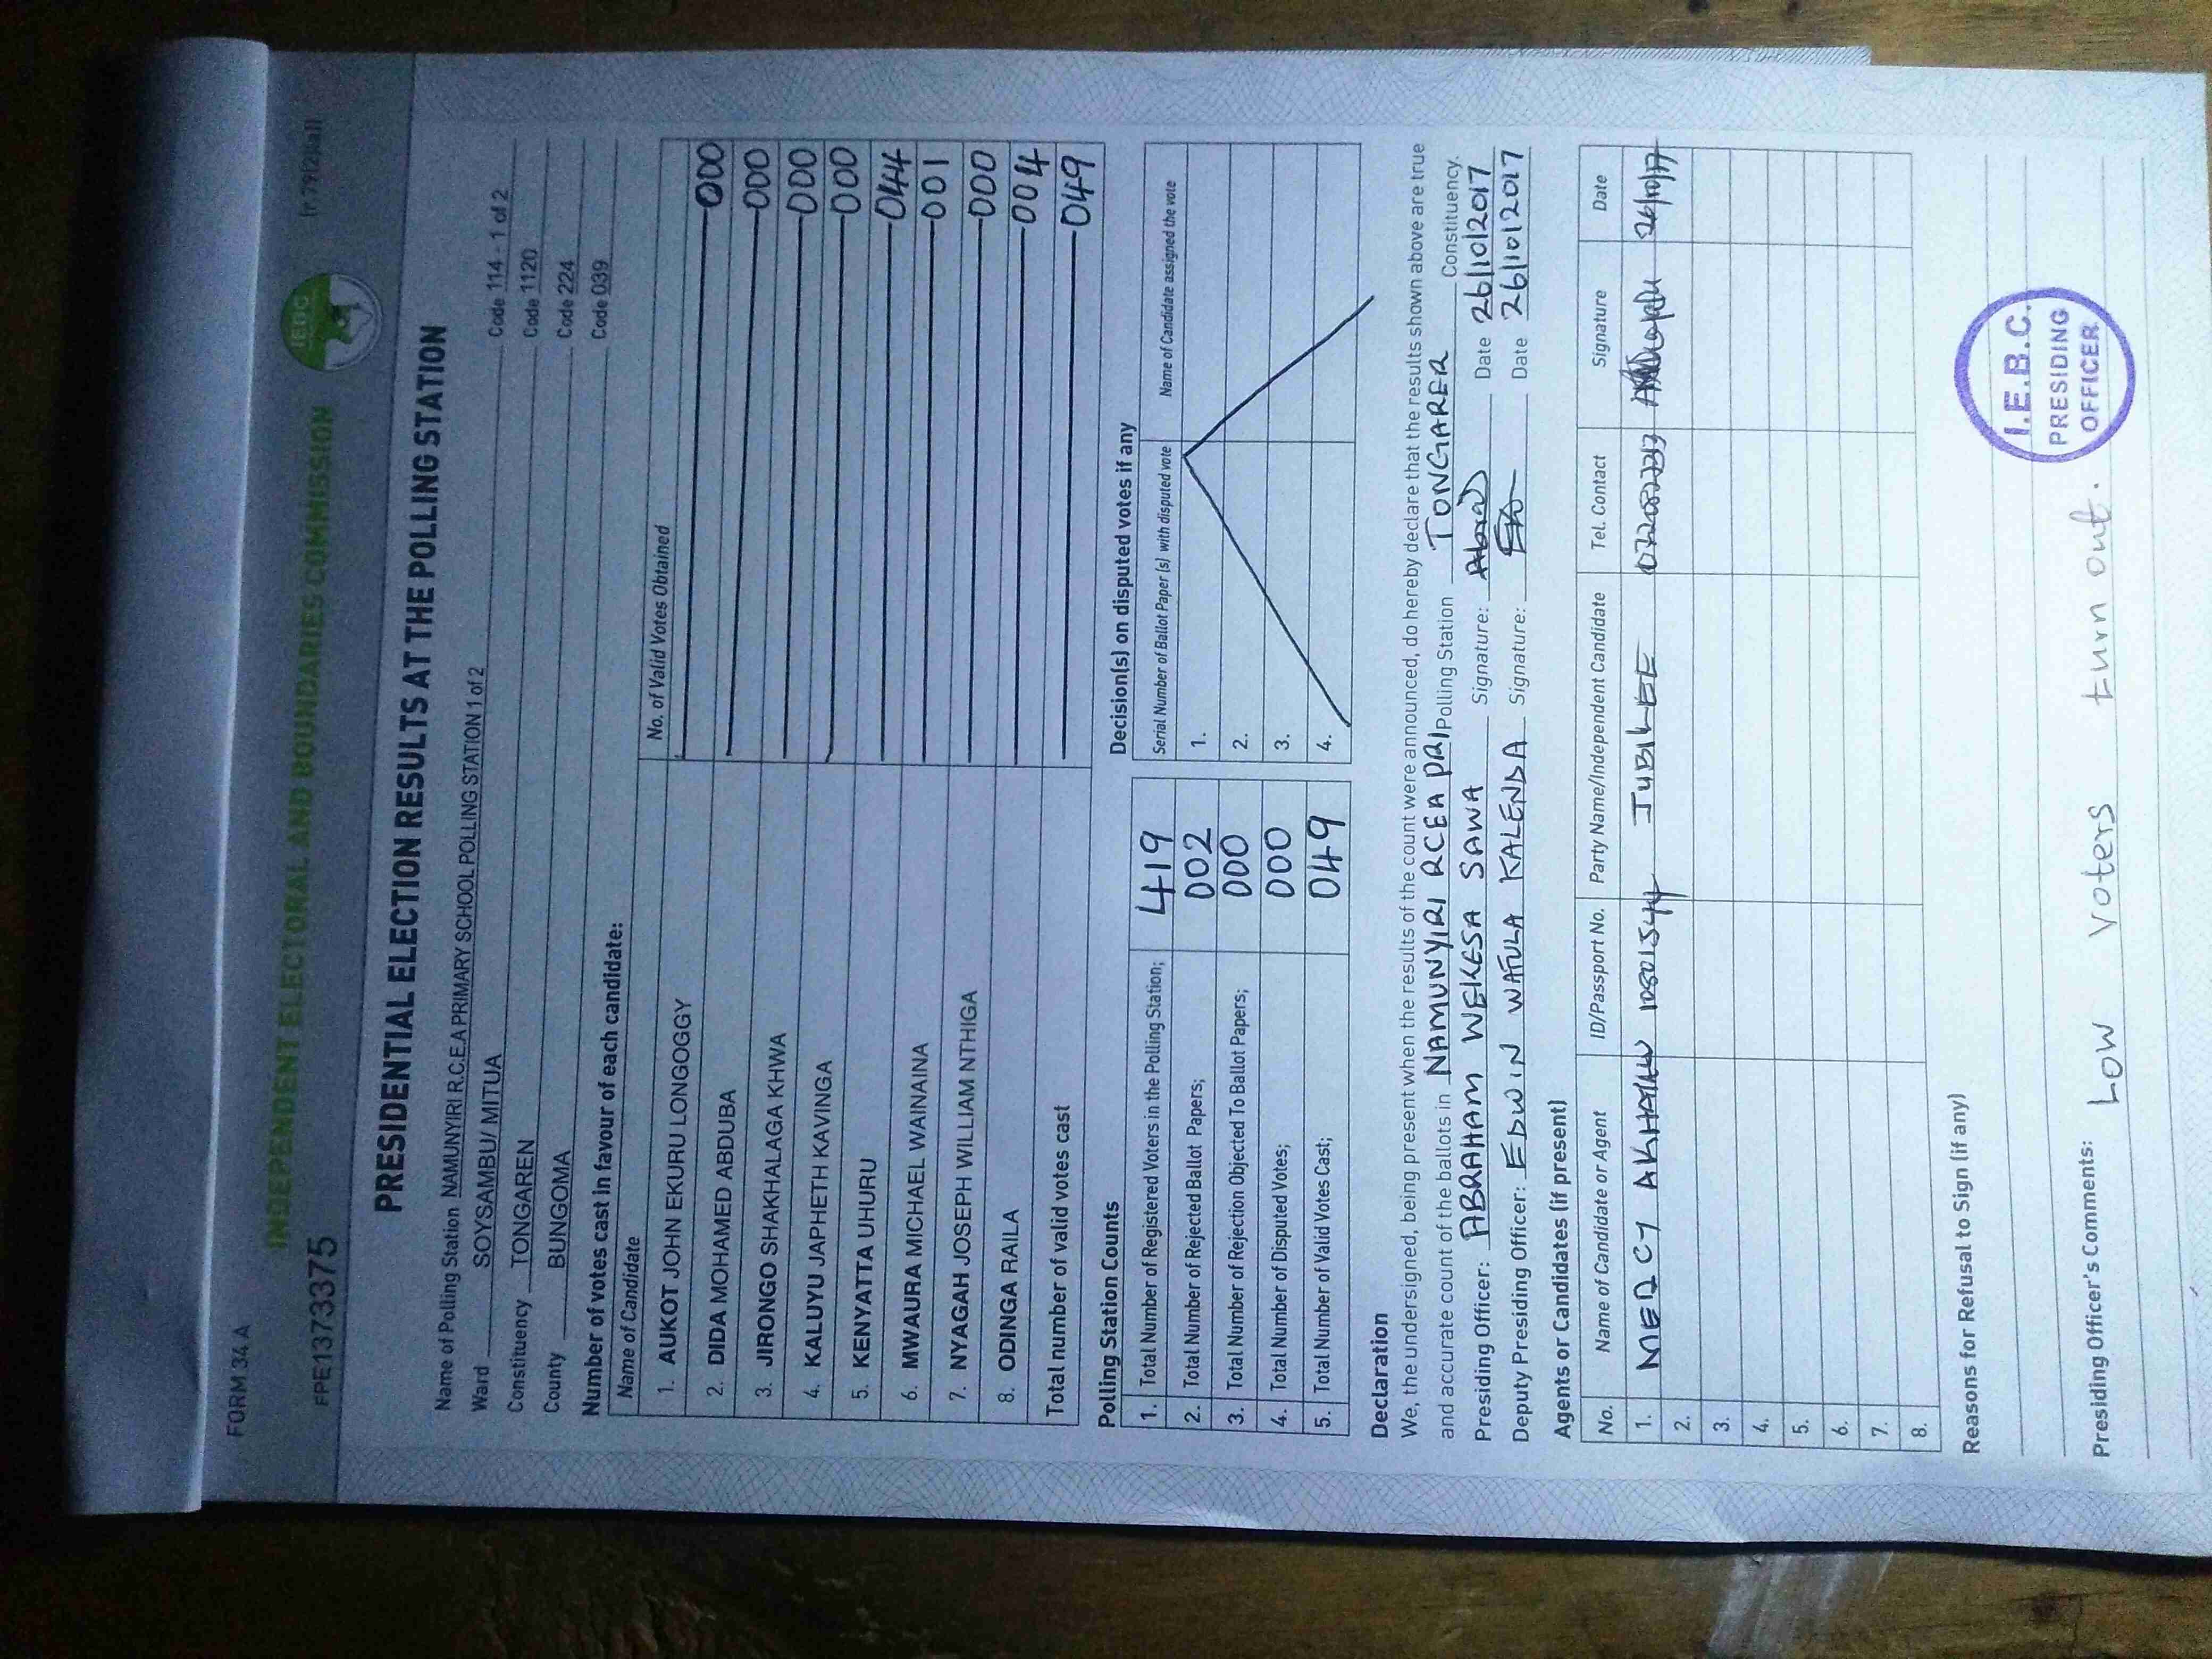 FORM 34 A
INDEPENDENT ELECTORAL AND BOUNDARIES COMMISSION
IEBC
FPE1373375
(r.79(2)(a))
PRESIDENTIAL ELECTION RESULTS AT THE POLLING STATION
Name of Polling Station NAMUNYIRI R.C.E.A PRIMARY SCHOOL POLLING STATION 1 of 2 Code 114 - 1 of 2
Ward SOYSAMBU/ MITUA Code 1120
Constituency TONGAREN Code 224
County BUNGOMA Code 039
Number of votes cast in favour of each candidate:
Name of Candidate No. of Valid Votes Obtained
1. AUKOT JOHN EKURU LONGOGGY 000
2. DIDA MOHAMED ABDUBA 000
3. JIRONGO SHAKHALAGA KHWA 000
4. KALUYU JAPHETH KAVINGA 000
5. KENYATTA UHURU 044
6. MWAURA MICHAEL WAINAINA 001
7. NYAGAH JOSEPH WILLIAM NTHIGA 000
8. ODINGA RAILA 004
Total number of valid votes cast 049
Polling Station Counts
1. Total Number of Registered Voters in the Polling Station; 419
2. Total Number of Rejected Ballot Papers; 002
3. Total Number of Rejection Objected To Ballot Papers; 000
4. Total Number of Disputed Votes; 000
5. Total Number of Valid Votes Cast; 049
Decision(s) on disputed votes if any
Serial Number of Ballot Paper (s) with disputed vote Name of Candidate assigned the vote
1.
2.
3.
4.
Declaration
We, the undersigned, being present when the results of the count were announced, do hereby declare that the results shown above are true
and accurate count of the ballots in NAMUNYIRI RCEA PRI Polling Station TONGAREN Constituency.
Presiding Officer: ABRAHAM WEKESA SAWA Signature: Date 26/10/2017
Deputy Presiding Officer: EDWIN WAFULA KALENDA Signature: Date 26/10/2017
Agents or Candidates (if present)
No. Name of Candidate or Agent ID/Passport No. Party Name/Independent Candidate Tel. Contact Signature Date
1. MERCY JUBILEE 26/10/17
2.
3.
4.
5.
6.
7.
8.
Reasons for Refusal to Sign (if any)
Presiding Officer's Comments: Low voters turn out.
I.E.B.C.
PRESIDING
OFFICER